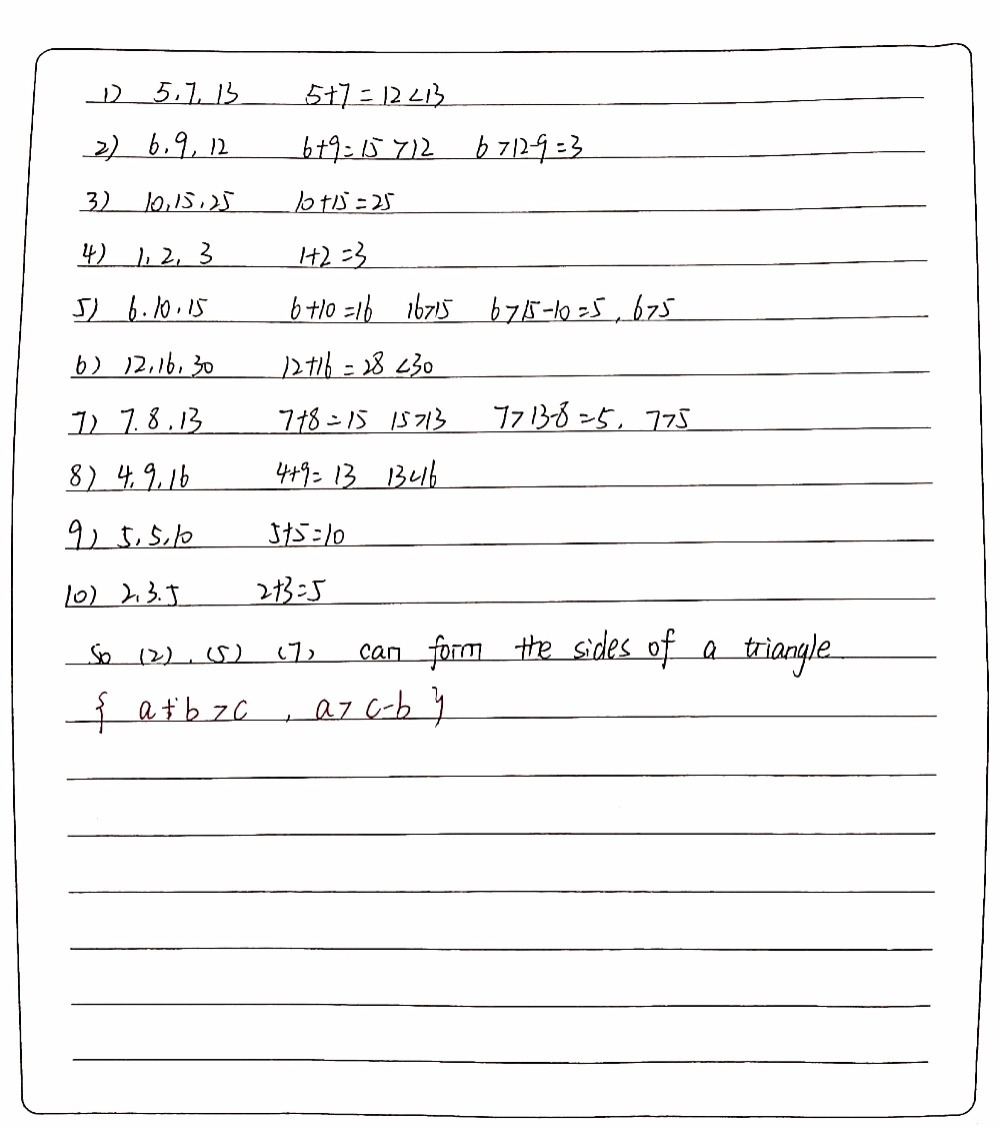 1) 5.7.13 5+7=12<13
2) 6.9.12 6+9=15>12 6>12-9=3
3) 10,15,25 10+15=25
4) 1,2,3 1+2=3
5) 6.10.15 6+10=16 16>15 6>15-10=5, 6>5
6) 12,16,30 12+16=28<30
7) 7.8.13 7+8=15 15>13 7>13-8=5, 7>5
8) 4,9,16 4+9=13 13<16
9) 5,5,10 5+5=10
10) 2,3.5 2+3=5
So (2).(5) (7) can form the sides of a triangle
{ a+b>c , a>c-b }